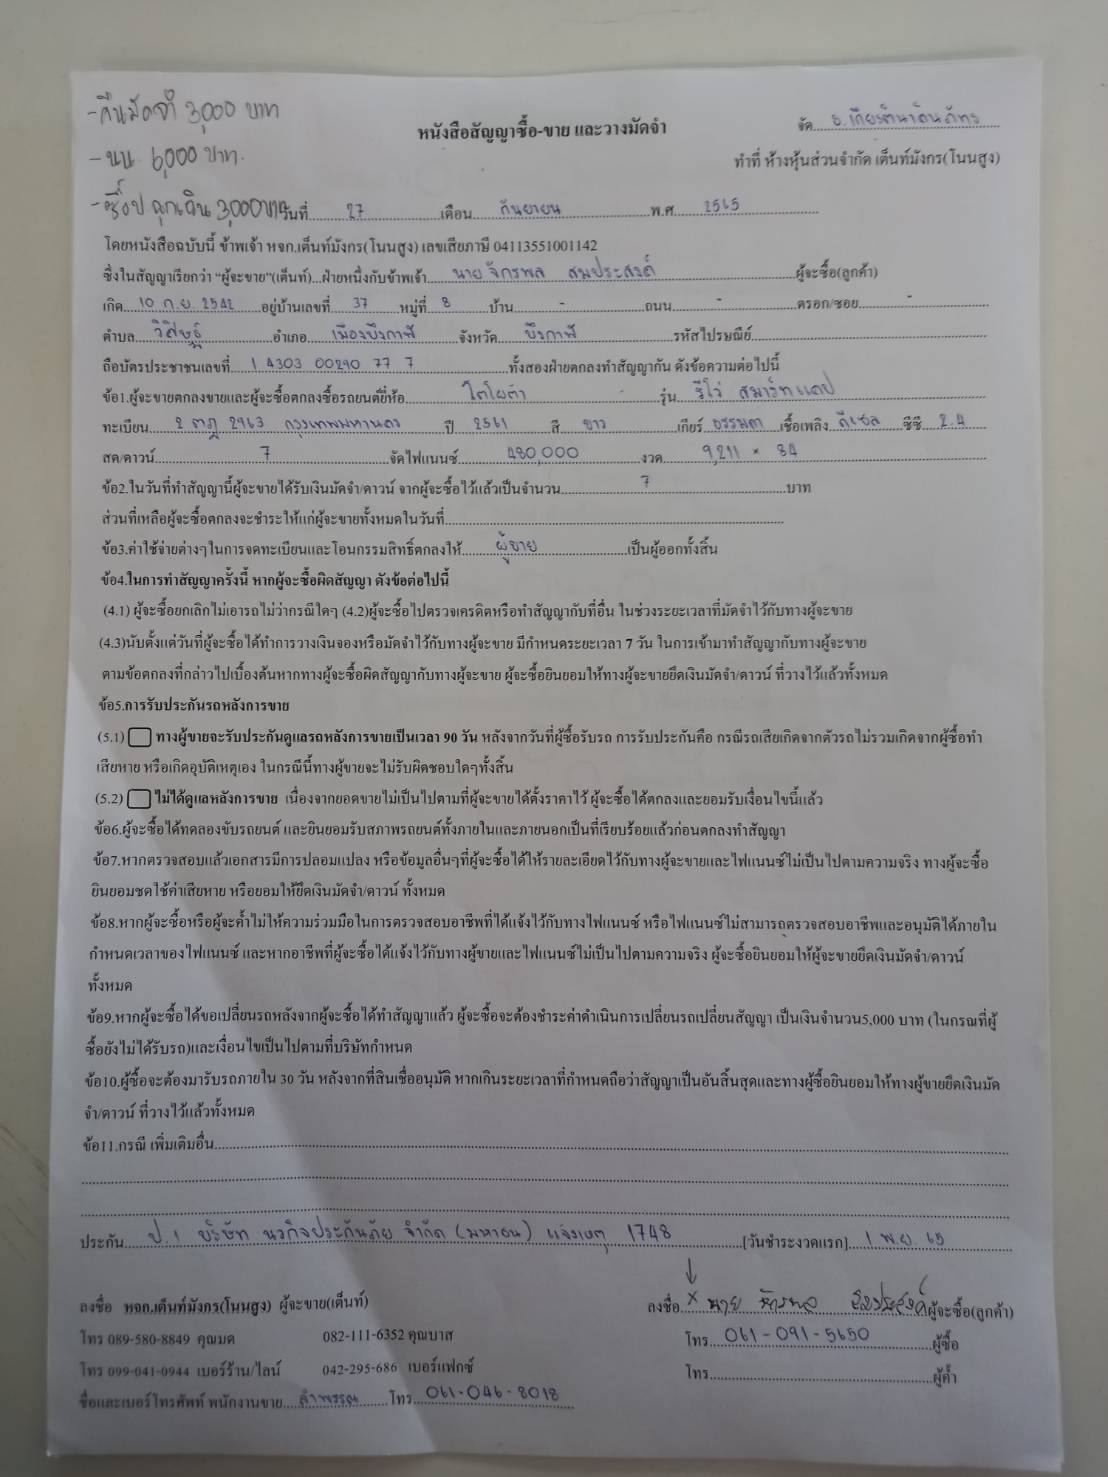 -คืนมัดจำ 3,000 บาท
หนังสือสัญญาซื้อ-ขาย และวางมัดจำ
จัด ธ.เกียรตินาคินภัทร
-นน 6,000 บาท.
ทำที่ ห้างหุ้นส่วนจำกัด เต็นท์มังกร(โนนสูง)
-ช๊อป ฉุกเฉิน 3,000บาท
วันที่ 27 เดือน กันยายน พ.ศ. 2565
โดยหนังสือฉบับนี้ ข้าพเจ้า หจก.เต็นท์มังกร(โนนสูง) เลขเสียภาษี 04113551001142
ซึ่งในสัญญาเรียกว่า “ผู้จะขาย”(เต็นท์)...ฝ่ายหนึ่งกับข้าพเจ้า นาย จักรพล สมประสงค์ ผู้จะซื้อ(ลูกค้า)
เกิด 10 ก.ย. 2542 อยู่บ้านเลขที่ 37 หมู่ที่ 8 บ้าน - ถนน - ตรอก/ซอย -
ตำบล วิศิษฐ์ อำเภอ เมืองบึงกาฬ จังหวัด บึงกาฬ รหัสไปรษณีย์
ถือบัตรประชาชนเลขที่ 1 4303 00290 77 7 ทั้งสองฝ่ายตกลงทำสัญญากัน ดังข้อความต่อไปนี้
ข้อ1.ผู้จะขายตกลงขายและผู้จะซื้อตกลงซื้อรถยนต์ยี่ห้อ โตโยต้า รุ่น รีโว่ สมาร์ทแคป
ทะเบียน 2 ฒฎ 2963 กรุงเทพมหานคร ปี 2561 สี ขาว เกียร์ ธรรมดา เชื้อเพลิง ดีเซล ซีซี 2.4
สด/ดาวน์ 7 จัดไฟแนนซ์ 480,000 งวด 9,211 × 84
ข้อ2.ในวันที่ทำสัญญานี้ผู้จะขายได้รับเงินมัดจำ/ดาวน์ จากผู้จะซื้อไว้แล้วเป็นจำนวน 7 บาท
ส่วนที่เหลือผู้จะซื้อตกลงจะชำระให้แก่ผู้จะขายทั้งหมดในวันที่
ข้อ3.ค่าใช้จ่ายต่างๆในการจดทะเบียนและโอนกรรมสิทธิ์ตกลงให้ ผู้ขาย เป็นผู้ออกทั้งสิ้น
ข้อ4.ในการทำสัญญาครั้งนี้ หากผู้จะซื้อผิดสัญญา ดังข้อต่อไปนี้
(4.1) ผู้จะซื้อยกเลิกไม่เอารถไม่ว่ากรณีใดๆ (4.2)ผู้จะซื้อไปตรวจเครดิตหรือทำสัญญากับที่อื่น ในช่วงระยะเวลาที่มัดจำไว้กับทางผู้จะขาย
(4.3)นับตั้งแต่วันที่ผู้จะซื้อได้ทำการวางเงินจองหรือมัดจำไว้กับทางผู้จะขาย มีกำหนดระยะเวลา 7 วัน ในการเข้ามาทำสัญญากับทางผู้จะขาย
ตามข้อตกลงที่กล่าวไปเบื้องต้นหากทางผู้จะซื้อผิดสัญญากับทางผู้จะขาย ผู้จะซื้อยินยอมให้ทางผู้จะขายยึดเงินมัดจำ/ดาวน์ ที่วางไว้แล้วทั้งหมด
ข้อ5.การรับประกันรถหลังการขาย
(5.1) ทางผู้ขายจะรับประกันดูแลรถหลังการขายเป็นเวลา 90 วัน หลังจากวันที่ผู้ซื้อรับรถ การรับประกันคือ กรณีรถเสียเกิดจากตัวรถไม่รวมเกิดจากผู้ซื้อทำ
เสียหาย หรือเกิดอุบัติเหตุเอง ในกรณีนี้ทางผู้ขายจะไม่รับผิดชอบใดๆทั้งสิ้น
(5.2) ไม่ได้ดูแลหลังการขาย เนื่องจากยอดขายไม่เป็นไปตามที่ผู้จะขายได้ตั้งราคาไว้ ผู้จะซื้อได้ตกลงและยอมรับเงื่อนไขนี้แล้ว
ข้อ6.ผู้จะซื้อได้ทดลองขับรถยนต์ และยินยอมรับสภาพรถยนต์ทั้งภายในและภายนอกเป็นที่เรียบร้อยแล้วก่อนตกลงทำสัญญา
ข้อ7.หากตรวจสอบแล้วเอกสารมีการปลอมแปลง หรือข้อมูลอื่นๆที่ผู้จะซื้อได้ให้รายละเอียดไว้กับทางผู้จะขายและไฟแนนซ์ไม่เป็นไปตามความจริง ทางผู้จะซื้อ
ยินยอมชดใช้ค่าเสียหาย หรือยอมให้ยึดเงินมัดจำ/ดาวน์ ทั้งหมด
ข้อ8.หากผู้จะซื้อหรือผู้จะค้ำไม่ให้ความร่วมมือในการตรวจสอบอาชีพที่ได้แจ้งไว้กับทางไฟแนนซ์ หรือไฟแนนซ์ไม่สามารถตรวจสอบอาชีพและอนุมัติได้ภายใน
กำหนดเวลาของไฟแนนซ์ และหากอาชีพที่ผู้จะซื้อได้แจ้งไว้กับทางผู้ขายและไฟแนนซ์ไม่เป็นไปตามความจริง ผู้จะซื้อยินยอมให้ผู้จะขายยึดเงินมัดจำ/ดาวน์
ทั้งหมด
ข้อ9.หากผู้จะซื้อได้ขอเปลี่ยนรถหลังจากผู้จะซื้อได้ทำสัญญาแล้ว ผู้จะซื้อจะต้องชำระค่าดำเนินการเปลี่ยนรถเปลี่ยนสัญญา เป็นเงินจำนวน5,000 บาท (ในกรณที่ผู้
ซื้อยังไม่ได้รับรถ)และเงื่อนไขเป็นไปตามที่บริษัทกำหนด
ข้อ10.ผู้ซื้อจะต้องมารับรถภายใน 30 วัน หลังจากที่สินเชื่ออนุมัติ หากเกินระยะเวลาที่กำหนดถือว่าสัญญาเป็นอันสิ้นสุดและทางผู้ซื้อยินยอมให้ทางผู้ขายยึดเงินมัด
จำ/ดาวน์ ที่วางไว้แล้วทั้งหมด
ข้อ11.กรณี เพิ่มเติมอื่น
ประกัน ป.1 บริษัท นวกิจประกันภัย จำกัด (มหาชน) แจ้งเหตุ 1748 [วันชำระงวดแรก] 1 พ.ย. 65
ลงชื่อ หจก.เต็นท์มังกร(โนนสูง) ผู้จะขาย(เต็นท์)
ลงชื่อ × นาย จักรพล สมประสงค์ ผู้จะซื้อ(ลูกค้า)
โทร 089-580-8849 คุณมด 082-111-6352 คุณบาส
โทร 061-091-5650 ผู้ซื้อ
โทร 099-041-0944 เบอร์ร้าน/ไลน์ 042-295-686 เบอร์แฟกซ์
โทร ผู้ค้ำ
ชื่อและเบอร์โทรศัพท์ พนักงานขาย ลำพรรณ โทร 061-046-8018